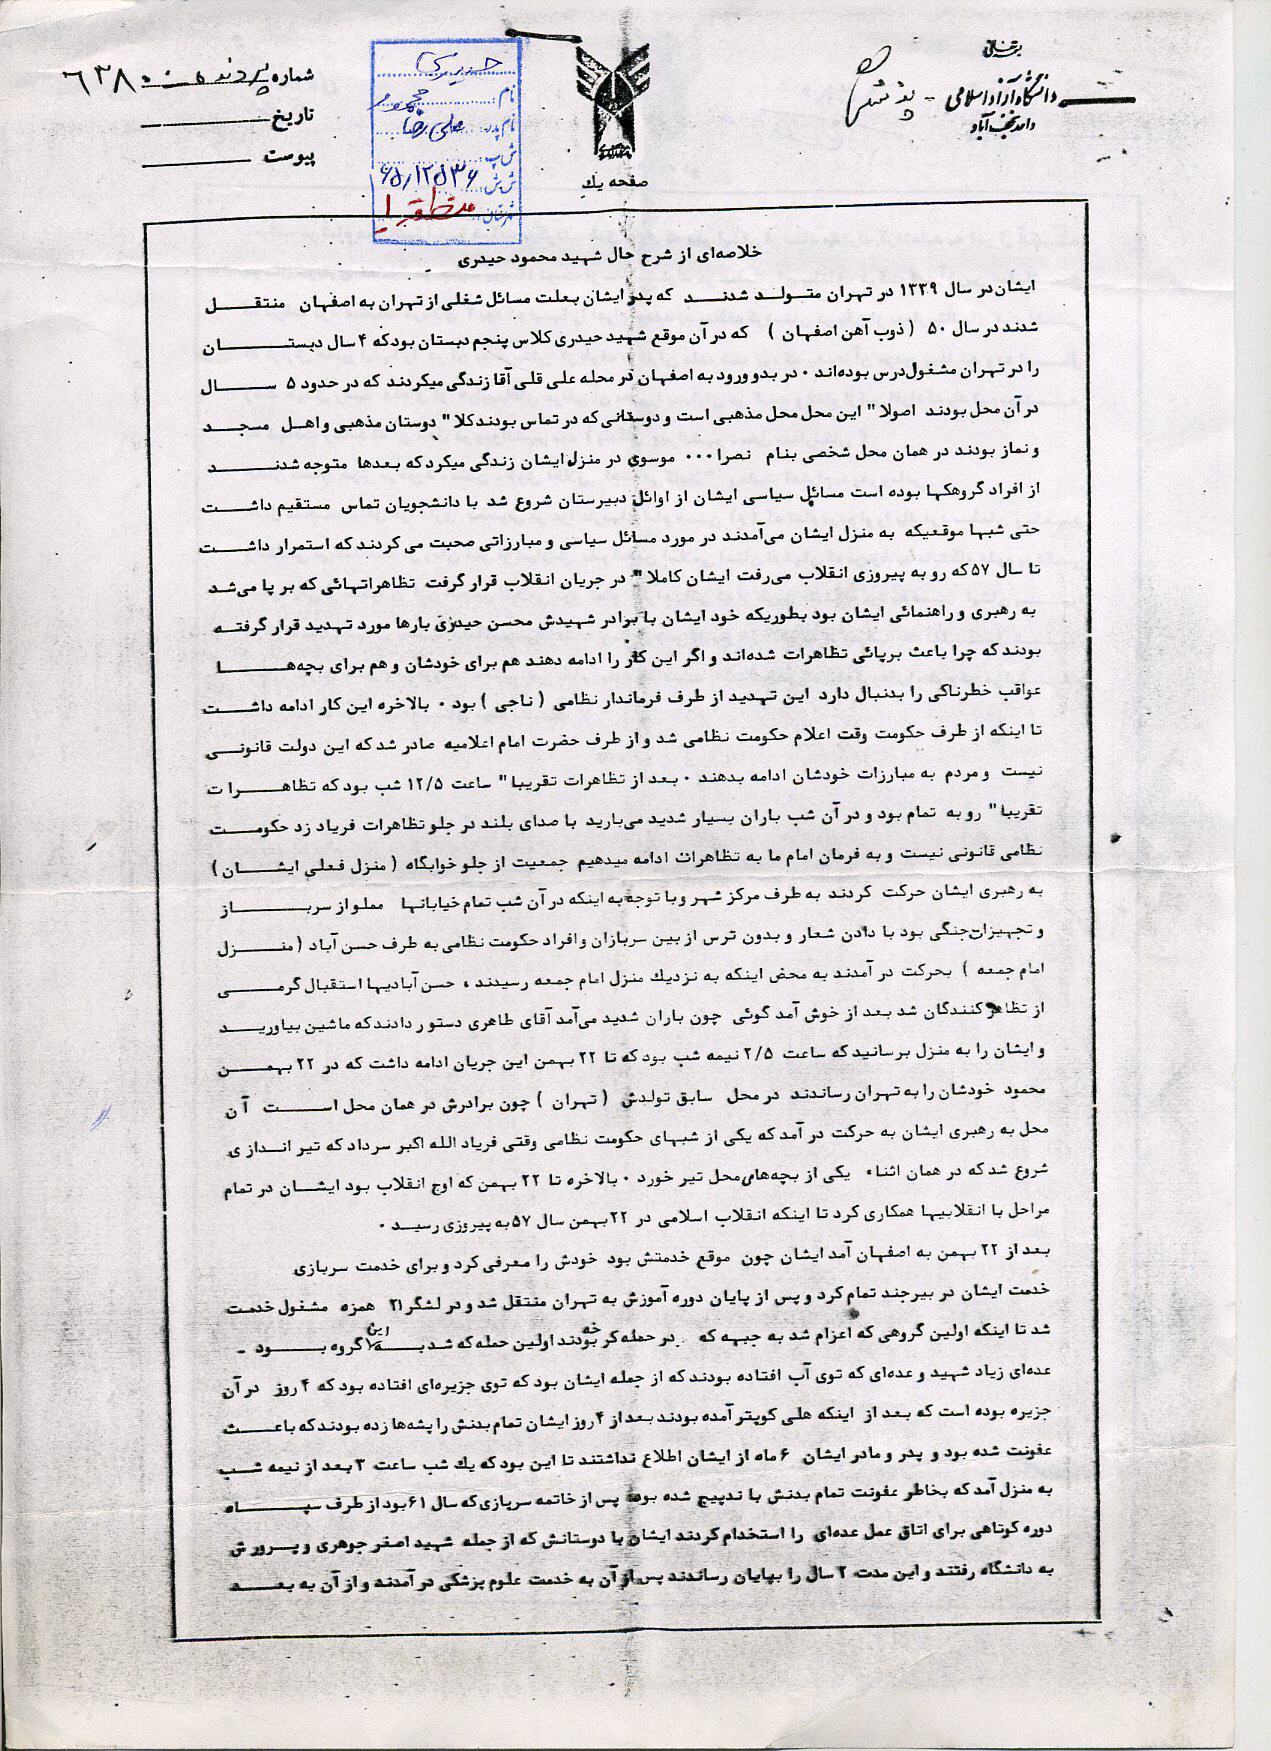 بسمه تعالی
دانشگاه آزاد اسلامی
واحد نجف آباد
شماره پرونده ۶۳۸۰
تاریخ
پیوست
حیدری
نام: محمود
نام پدر: علی رضا
ش پ:
ش ش:
شهرستان:
صفحه یك
خلاصه‌ای از شرح حال شهید محمود حیدری
ایشان در سال ۱۳۳۹ در تهران متولد شدند که پدر ایشان بعلت مسائل شغلی از تهران به اصفهان منتقل
شدند در سال ۵۰ ( ذوب آهن اصفهان ) که در آن موقع شهید حیدری کلاس پنجم دبستان بود که ۴ سال دبستان
را در تهران مشغول درس بوده‌اند ۰ در بدو ورود به اصفهان در محله علی قلی آقا زندگی میکردند که در حدود ۵ سال
در آن محل بودند اصولا" این محل محل مذهبی است و دوستانی که در تماس بودند کلا" دوستان مذهبی و اهل مسجد
و نماز بودند در همان محل شخصی بنام نصرا۰۰۰ موسوی در منزل ایشان زندگی میکرد که بعدها متوجه شدند
از افراد گروهکها بوده است مسائل سیاسی ایشان از اوائل دبیرستان شروع شد با دانشجویان تماس مستقیم داشت
حتی شبها موقعیکه به منزل ایشان می‌آمدند در مورد مسائل سیاسی و مبارزاتی صحبت می کردند که استمرار داشت
تا سال ۵۷ که رو به پیروزی انقلاب می‌رفت ایشان کاملا" در جریان انقلاب قرار گرفت تظاهراتهائی که بر پا می‌شد
به رهبری و راهنمائی ایشان بود بطوریکه خود ایشان با برادر شهیدش محسن حیدری بارها مورد تهدید قرار گرفته
بودند که چرا باعث برپائی تظاهرات شده‌اند و اگر این کار را ادامه دهند هم برای خودشان و هم برای بچه‌ها
عواقب خطرناکی را بدنبال دارد این تهدید از طرف فرماندار نظامی ( ناجی ) بود ۰ بالاخره این کار ادامه داشت
تا اینکه از طرف حکومت وقت اعلام حکومت نظامی شد و از طرف حضرت امام اعلامیه صادر شد که این دولت قانونی
نیست و مردم به مبارزات خودشان ادامه بدهند ۰ بعد از تظاهرات تقریبا" ساعت ۱۲/۵ شب بود که تظاهرات
تقریبا" رو به تمام بود و در آن شب باران بسیار شدید می‌بارید با صدای بلند در جلو تظاهرات فریاد زد حکومت
نظامی قانونی نیست و به فرمان امام ما به تظاهرات ادامه میدهیم جمعیت از جلو خوابگاه ( منزل فعلی ایشان )
به رهبری ایشان حرکت کردند به طرف مرکز شهر و با توجه به اینکه در آن شب تمام خیابانها مملو از سرباز
و تجهیزات جنگی بود با دادن شعار و بدون ترس از بین سربازان و افراد حکومت نظامی به طرف حسن آباد ( منزل
امام جمعه ) بحرکت در آمدند به محض اینکه به نزدیك منزل امام جمعه رسیدند ، حسن آبادیها استقبال گرمی
از تظاهر کنندگان شد بعد از خوش آمد گوئی چون باران شدید می‌آمد آقای طاهری دستور دادند که ماشین بیاورید
و ایشان را به منزل برسانید که ساعت ۲/۵ نیمه شب بود که تا ۲۲ بهمن این جریان ادامه داشت که در ۲۲ بهمن
محمود خودشان را به تهران رساندند در محل سابق تولدش ( تهران ) چون برادرش در همان محل است آن
محل به رهبری ایشان به حرکت در آمد که یکی از شبهای حکومت نظامی وقتی فریاد الله اکبر سرداد که تیر اندازی
شروع شد که در همان اثناء یکی از بچه‌های محل تیر خورد ۰ بالاخره تا ۲۲ بهمن که اوج انقلاب بود ایشان در تمام
مراحل با انقلابیها همکاری کرد تا اینکه انقلاب اسلامی در ۲۲ بهمن سال ۵۷ به پیروزی رسید ۰
بعد از ۲۲ بهمن به اصفهان آمد ایشان چون موقع خدمتش بود خودش را معرفی کرد و برای خدمت سربازی
خدمت ایشان در بیرجند تمام کرد و پس از پایان دوره آموزش به تهران منتقل شد و در لشگر ۲۱ همزه مشغول خدمت
شد تا اینکه اولین گروهی که اعزام شد به جبهه که در حمله کرخه بودند اولین حمله که شد به این گروه بود -
عده‌ای زیاد شهید و عده‌ای که توی آب افتاده بودند که از جمله ایشان بود که توی جزیره‌ای افتاده بود که ۴ روز در آن
جزیره بوده است که بعد از اینکه هلی کوپتر آمده بودند بعد از ۴ روز ایشان تمام بدنش را پشه‌ها زده بودند که باعث
عفونت شده بود و پدر و مادر ایشان ۶ ماه از ایشان اطلاع نداشتند تا این بود که یك شب ساعت ۳ بعد از نیمه شب
به منزل آمد که بخاطر عفونت تمام بدنش با ندپیچ شده بود پس از خاتمه سربازی که سال ۶۱ بود از طرف سپاه
دوره کوتاهی برای اتاق عمل عده‌ای را استخدام کردند ایشان با دوستانش که از جمله شهید اصغر جوهری و پرورش
به دانشگاه رفتند و این مدت ۲ سال را بپایان رساندند پس از آن به خدمت علوم پزشکی در آمدند و از آن به بعد